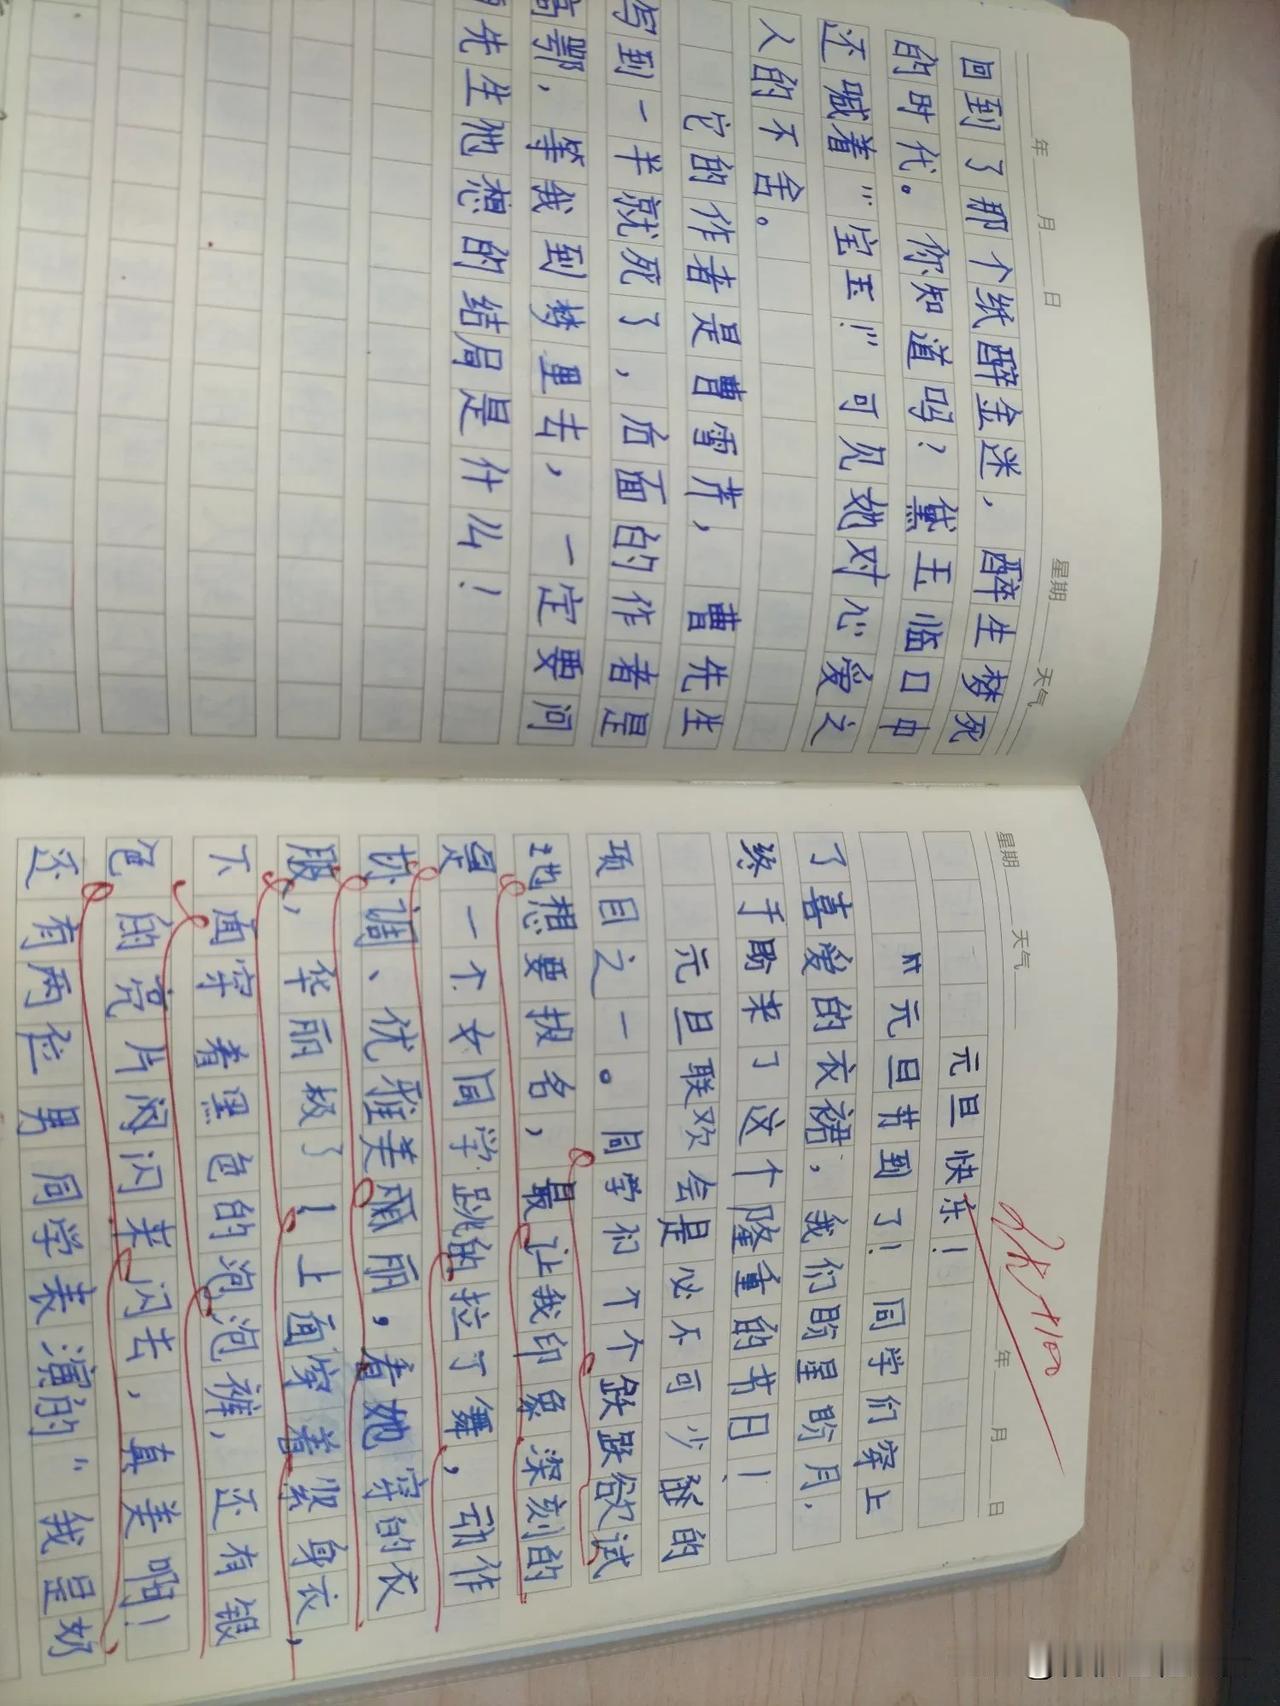 年 月 日 星期 天气
回到了那个纸醉金迷，醉生梦死
的时代。你知道吗？黛玉临口中
还喊着“宝玉！”可见她对心爱之
人的不舍。
它的作者是曹雪芹，曹先生
写到一半就死了，后面的作者是
高鄂，等我到梦里去，一定要问
先生他想的结局是什么！
星期 天气 年 月 日
+100
元旦快乐！
元旦节到了！同学们穿上
了喜爱的衣裙，我们盼星盼月，
终于盼来了这个隆重的节日！
元旦联欢会是必不可少的
项目之一。同学们个个跃跃欲试
地想要报名，最让我印象深刻的
是一个女同学跳的拉丁舞，动作
协调、优雅美丽，看她穿的衣
服，华丽极了！上面穿着紧身衣，
下面穿着黑色的泡泡裤，还有银
色的亮片闪闪来闪去，真美啊！
还有两位男同学表演的“我是奶